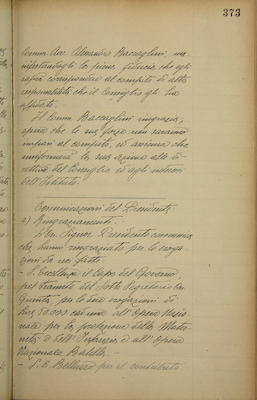 373
Comm. Avv. Alessandro Baccaglini, ma-
nifestandogli la piena fiducia che egli
saprà corrispondere al compito di alta
responsabilità che il Consiglio gli ha
affidato.
Il Comm. Baccaglini ringrazia,
spera che le sue forze non saranno
impari al compito, ed assicura che
uniformerà la sua azione alle di-
rettive del Consiglio ed agli interessi
dell'Istituto.
Comunicazioni del Presidente.
a) Ringraziamenti.
L'On. Signor Presidente comunica
che hanno ringraziato per le eroga-
zioni da noi fatte:
- S. Eccellenza il Capo del Governo
pel tramite del Sotto Segretario On.
Giunta, per le due erogazioni di
lire 50.000 cadauna all'Opera Nazio-
nale per la protezione della Mater-
nità e dell'Infanzia e all'Opera
Nazionale Balilla. -
- S. E. Belluzzo per il contributo